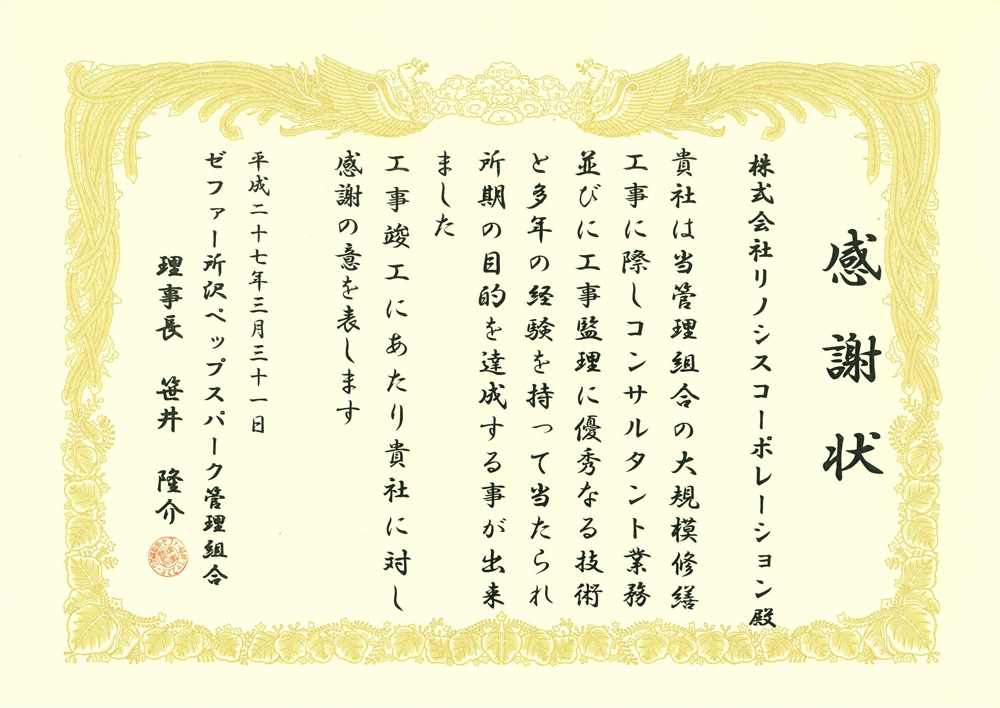 感謝状
株式会社リノシスコーポレーション殿
貴社は当管理組合の大規模修繕
工事に際しコンサルタント業務
並びに工事監理に優秀なる技術
と多年の経験を持って当たられ
所期の目的を達成する事が出来
ました
工事竣工にあたり貴社に対し
感謝の意を表します
平成二十七年三月三十一日
ゼファー所沢ペップスパーク管理組合
理事長 笹井 隆介